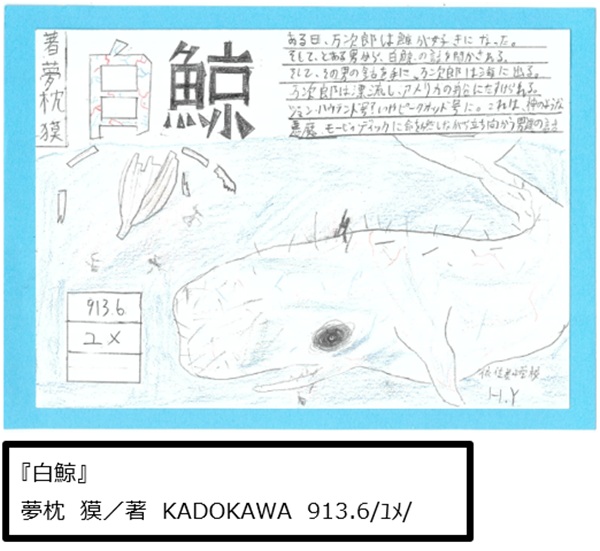 著 夢枕 獏
白鯨
ある日、万次郎は鯨が好きになった。
そして、とある男から、白鯨の話を聞かされる。
そして、その男の銛を手に、万次郎は海に出る。
万次郎は漂流し、アメリカの船にたすけられる。
ジョン・ハウランド号?いやピークオッド号に。これは、神のような
悪魔 モービィ・ディックに立ち向かう男達の
913.6
ユメ
H.Y
『白鯨』
夢枕 獏／著 KADOKAWA 913.6/ﾕﾒ/